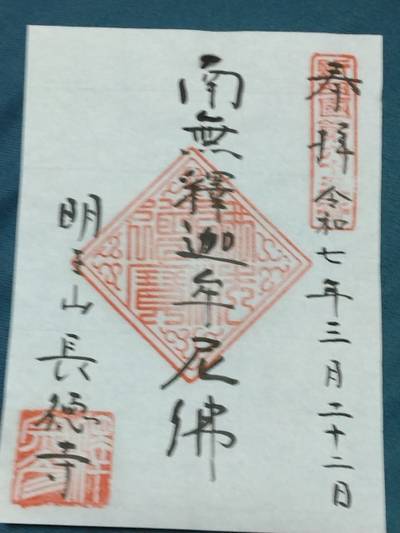 奉拝 令和七年三月二十二日
南無釋迦牟尼佛
明王山長徳寺